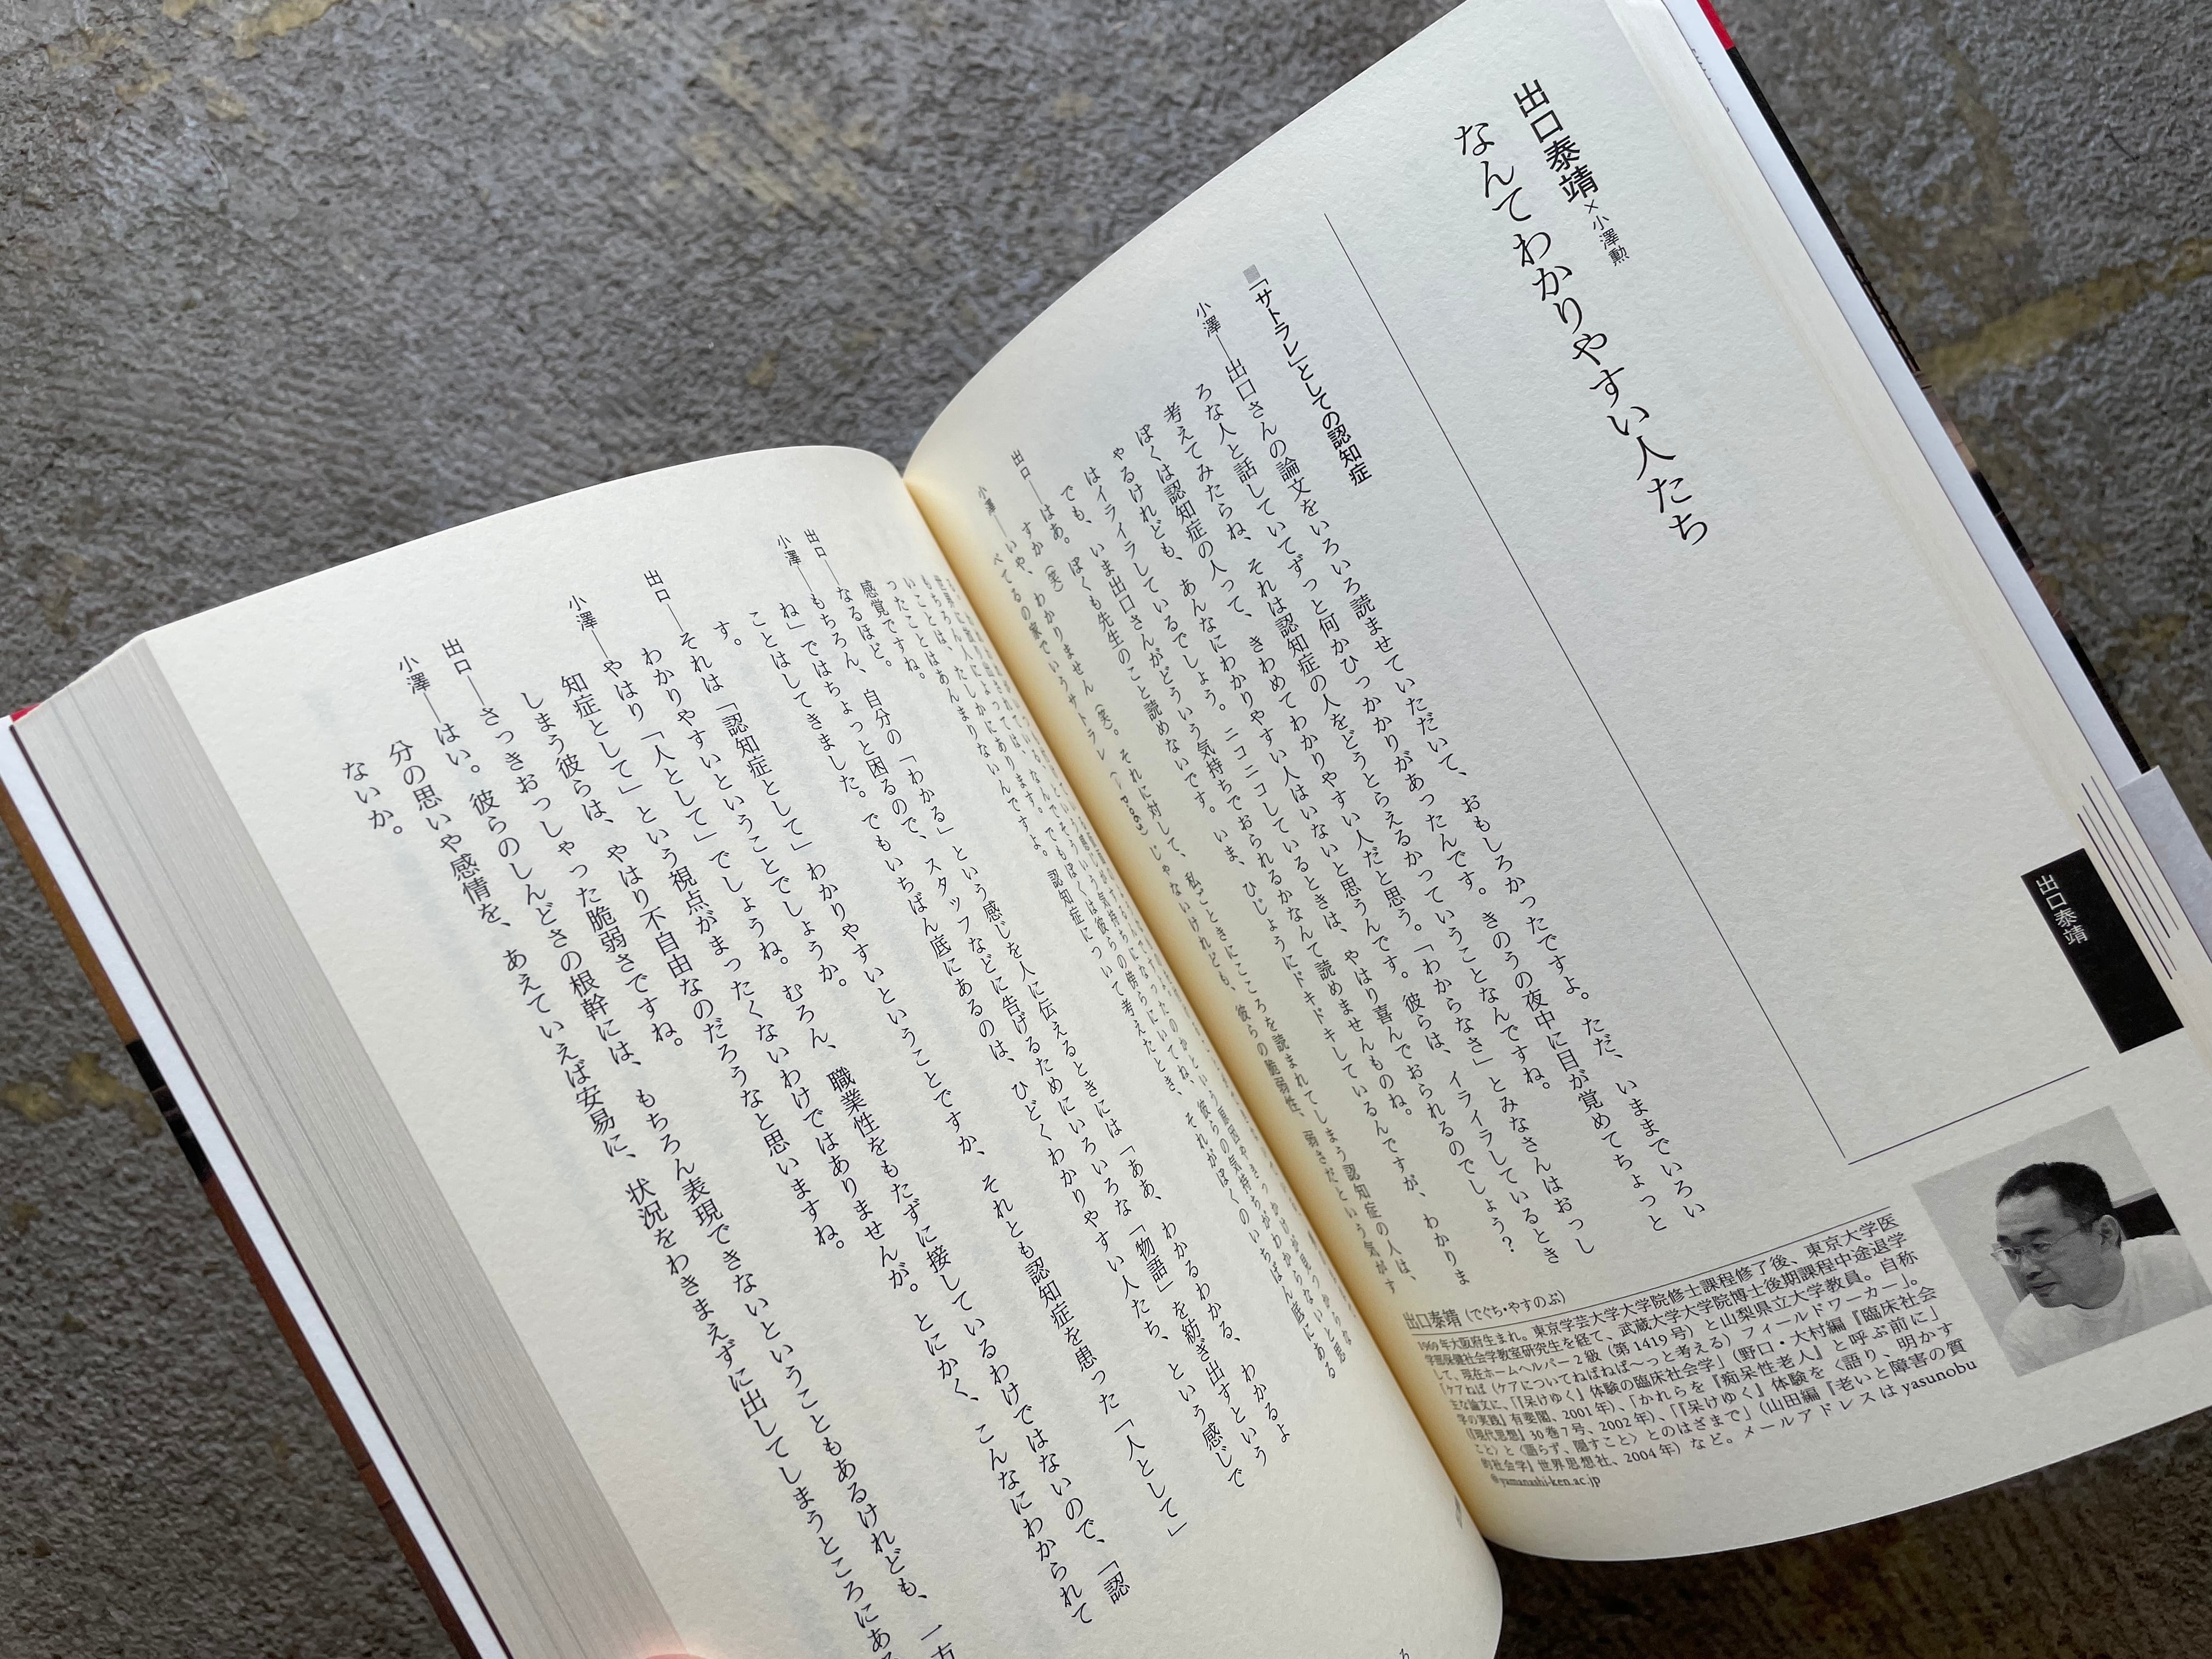 出口泰靖×小澤勲
なんてわかりやすい人たち
■「サトラレ」としての認知症
小澤――出口さんの論文をいろいろ読ませていただいて、おもしろかったですよ。ただ、いままでいろい
ろな人と話していてずっと何かひっかかりがあったんです。きのうの夜中に目が覚めてちょっと
考えてみたらね、それは認知症の人をどうとらえるかっていうことなんですね。
ぼくは認知症の人って、きわめてわかりやすい人だと思う。「わからなさ」とみなさんはおっし
ゃるけれども、あんなにわかりやすい人はいないと思うんです。彼らは、イライラしているとき
はイライラしているでしょう。ニコニコしているときは、やはり喜んでおられるのでしょう？
でも、いま出口さんがどういう気持ちでおられるかなんて読めませんものね。
出口――はあ。ぼくも先生のこと読めないです。いま、ひじょうにドキドキしているんですが、わかりま
すか（笑）
小澤――いや、わかりません（笑）。それに対して、私ごときにこころを読まれてしまう認知症の人は、
べてるの家でいうサトラレ（→P069）じゃないけれども、彼らの脆弱性、弱さだという気がす
出口泰靖
出口泰靖（でぐち・やすのぶ）
1969年大阪府生まれ。東京学芸大学大学院修士課程修了後、東京大学医
学部保健社会学教室研究生を経て、武蔵大学大学院博士後期課程中途退学
して、現在ホームヘルパー2級（第1419号）と山梨県立大学教員。自称
「ケアねば（ケアについてねばねば～っと考える）フィールドワーカー」。
主な論文に、「『呆けゆく』体験の臨床社会学」（野口・大村編『臨床社会
学の実践』有斐閣、2001年）、「かれらを『痴呆性老人』と呼ぶ前に」
（『現代思想』30巻7号、2002年）、「『呆けゆく』体験を〈語り、明かす
こと〉と〈語らず、隠すこと〉とのはざまで」（山田編『老いと障害の質
的社会学』世界思想社、2004年）など。メールアドレスはyasunobu
@yamanashi-ken.ac.jp
いことは、あんまりないんですよ。認知症について考えたとき、それがぼくのいちばん底にある
感覚ですね。
出口――なるほど。
小澤――もちろん、自分の「わかる」という感じを人に伝えるときには「ああ、わかるわかる、わかるよ
ね」ではちょっと困るので、スタッフなどに告げるためにいろいろな「物語」を紡ぎ出すという
ことはしてきました。でもいちばん底にあるのは、ひどくわかりやすい人たち、という感じで
す。
出口――それは「認知症として」わかりやすいということですか、それとも認知症を患った「人として」
わかりやすいということでしょうか。
小澤――やはり「人として」でしょうね。むろん、職業性をもたずに接しているわけではないので、「認
知症として」という視点がまったくないわけではありませんが。とにかく、こんなにわかられて
しまう彼らは、やはり不自由なのだろうなと思いますね。
出口――さっきおっしゃった脆弱さですね。
小澤――はい。彼らのしんどさの根幹には、もちろん表現できないということもあるけれども、一方
分の思いや感情を、あえていえば安易に、状況をわきまえずに出してしまうところにあ
ないか。